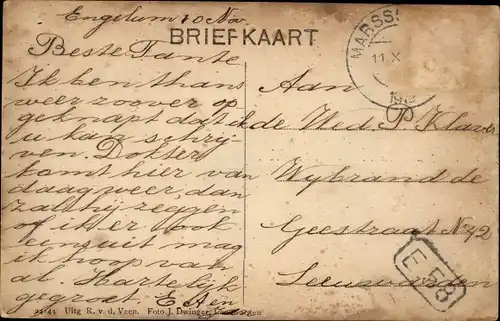 Engelum 10 Nov.
BRIEFKAART
Beste Tante
Ik ben thans
weer zoover op
geknapt dat ik
u kan schrij
ven. Dokter
komt hier van
daag weer, dan
zal hij zeggen
of ik er ook
eens uit mag
ik hoop van
al. Hartelijk
gegroet.
MARSS
11.X
Aan
de Wed. P. Klaver
Wybrand de
Geestraat No 32
Leeuwarden
E 58
94143 Uitg R. v. d. Veen. Foto J. Dwinger,